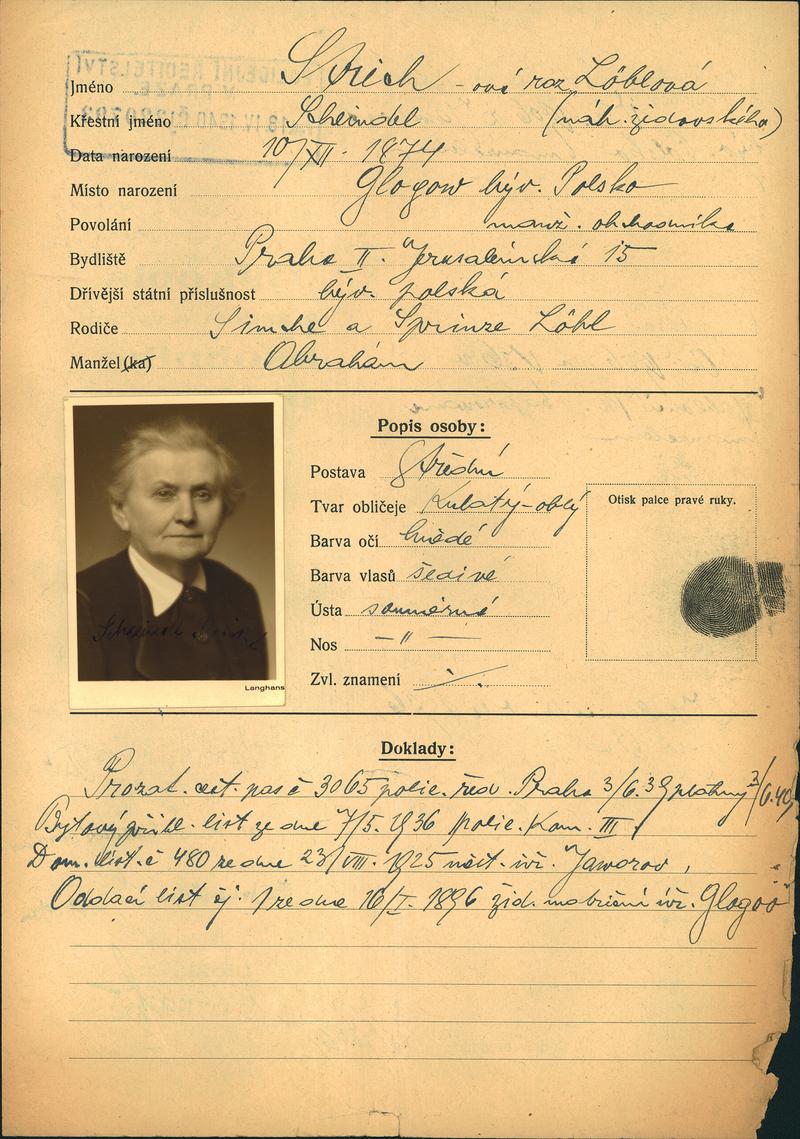 Jméno Strich -ová roz Löblová
Křestní jméno Scheindel (náb. židovského)
Data narození 10/XII. 1874
Místo narození Glogow býv. Polsko
Povolání manž. obchodníka
Bydliště Praha II. Jerusalémská 15
Dřívější státní příslušnost býv. polská
Rodiče Simche a Sprinze Löbl
Manžel(ka) Abrahám
Popis osoby:
Postava Střední
Tvar obličeje Kulatý-oblý
Barva očí hnědé
Barva vlasů šedivé
Ústa souměrná
Nos — " —
Zvl. znamení
Otisk palce pravé ruky.
Langhans
Doklady:
Prozat. cest. pas č 3065 polic. řed. Praha 3/6.39 platný 3/6.40,
Bytový přihl. list ze dne 7/5. 1936 polic. Kom. III,
Dom. list. č 480 ze dne 23/VIII. 1925 Jaworov,
Oddací list čj. 1 ze dne 16/I. 1896 žid. Glogow